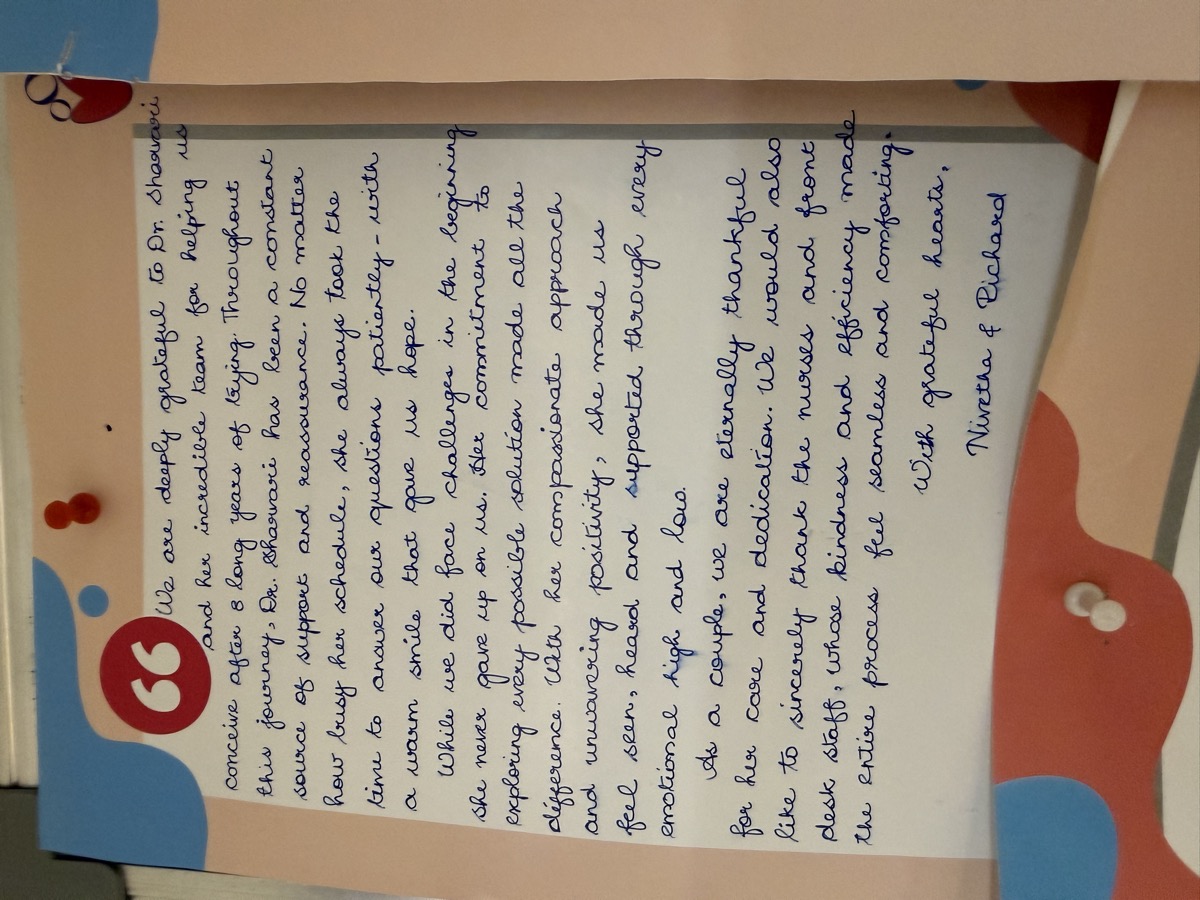 We are deeply grateful to Dr. Sharvari
and her incredible team for helping us
conceive after 8 long years of trying. Throughout
this journey, Dr. Sharvari has been a constant
source of support and reassurance. No matter
how busy her schedule, she always took the
time to answer our questions patiently - with
a warm smile that gave us hope.
While we did face challenges in the beginning
she never gave up on us. Her commitment to
exploring every possible solution made all the
difference. With her compassionate approach
and unwavering positivity, she made us
feel seen, heard and supported through every
emotional high and low.
As a couple, we are eternally thankful
for her care and dedication. We would also
like to sincerely thank the nurses and front
desk staff, whose kindness and efficiency made
the entire process feel seamless and comforting.
With grateful hearts,
Nivetha & Richard